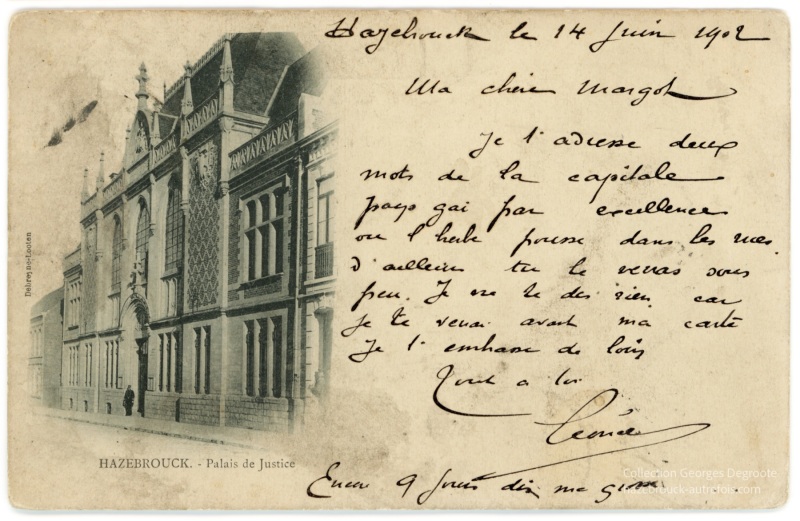 Hazebrouck le 14 Juin 1902
Ma chère Margot
Je t'adresse deux
mots de la capitale
pays gai par excellence
ou l'herbe pousse dans les rues
d'ailleurs tu le verras sous
peu. Je ne te dis rien car
je te verrai avant ma carte
Je t'embrasse de loin
Tout a toi
Encore 9 jours dix ma
HAZEBROUCK. - Palais de Justice
Debreyne-Looten
Collection Georges Degroote
hazebrouck-autrefois.com